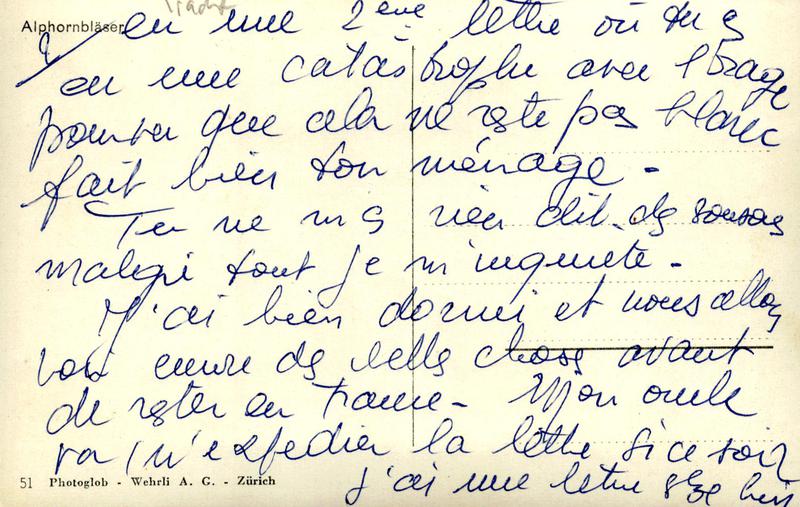 Alphornbläser
eu une 2ème lettre où tu as
eu une catastrophe avec l'orage
pourvu que cela ne reste pas blanc
fait bien ton ménage.
Tu ne m'as rien dit des
malgré tout je m'inquiete.
J'ai bien dormi et nous allons
voir encore des belles choses avant
de rester en France. Mon oncle
va m'expedier la lettre si ce soir
j'ai une lettre chez lui
51 Photoglob - Wehrli A. G. - Zürich